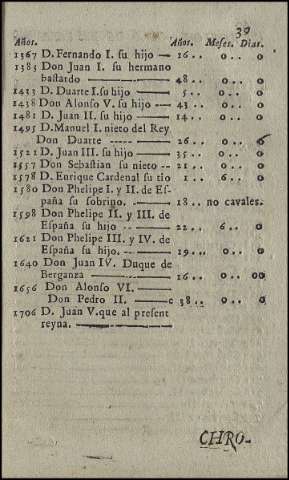 39
Años. Años. Meses. Dias.
1367 D. Fernando I. su hijo — 16.. 0.. 0
1383 Don Juan I. su hermano
bastardo — 48.. 0.. 0
1433 D. Duarte I. su hijo — 5.. 0.. 0
1438 Don Alonso V. su hijo — 43.. 0.. 0
1481 D. Juan II. su hijo — 14.. 0.. 0
1495 D. Manuel I. nieto del Rey
Don Duarte — 26.. 0.. 0
1521 D. Juan III. su hijo — 35.. 0.. 0
1557 Don Sebastian su nieto -- 21.. 0.. 0
1578 D. Enrique Cardenal su tio 1.. 6.. 0
1580 Don Phelipe I. y II. de Es-
paña su sobrino. — 18.. no cavales.
1598 Don Phelipe II. y III. de
España su hijo — 22.. 6.. 0
1621 Don Phelipe III. y IV. de
España su hijo. — 19... 0.. 0
1640 Don Juan IV. Duque de
Berganza — 16.. 0.. 00
1656 Don Alonso VI. —
Don Pedro II. — c 38.. 0.. 0
1706 D. Juan V. que al present
reyna. —
CHRO-